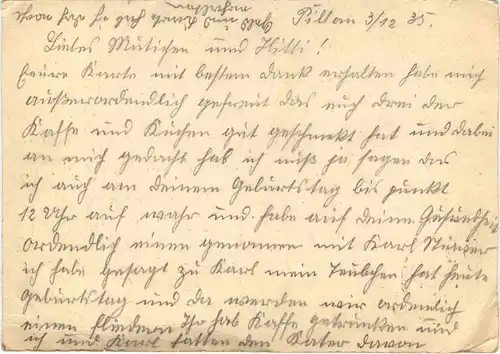 Pillau 3/12 35.
Liebes Mütichen und Hitti!
Eeure Karte mit bestem Dank erhalten habe mich
außerordendlich gefreut das euch drei der
Kaffe und Küchen gut geschmekt hat und dabei
an mich gedacht hab ich muß ja sagen das
ich auch am deinem Geburtstag bis punkt
12 Uhr auf wahr und habe auf deine Gesundheit
ordendlich einen genomen mit Karl
ich habe gesagt zu Karl mein Täubchen hat heute
Geburtstag und da werden wir ordenlich
einen Ihr hab Kaffe getrunken und
ich und Karl hatten den Kater davon